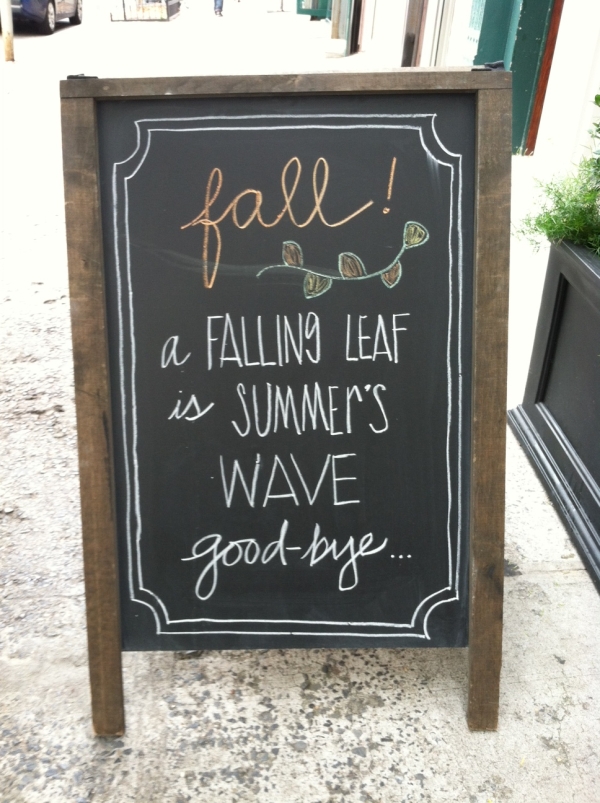 fall!
a FALLING LEAF
is SUMMER'S
WAVE
good-bye...